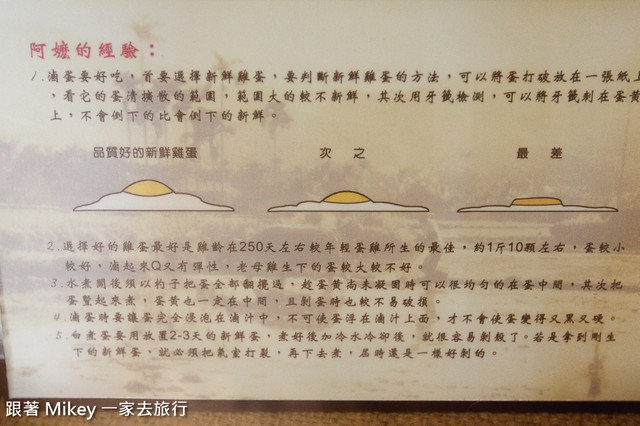 阿嬤的經驗：
1.滷蛋要好吃，首要選擇新鮮雞蛋，要判斷新鮮雞蛋的方法，可以將蛋打破放在一張紙上
，看它的蛋清擴散的範圍，範圍大的較不新鮮，其次用牙籤檢測，可以將牙籤刺在蛋黃
上，不會倒下的比會倒下的新鮮。
品質好的新鮮雞蛋 次 之 最 差
2.選擇好的雞蛋最好是雞齡在250天左右較年輕蛋雞所生的最佳，約1斤10顆左右，蛋較小
較好，滷起來Q又有彈性，老母雞生下的蛋較大較不好。
3.水煮開後須以杓子把蛋全部翻攪過，趁蛋黃尚未凝固時可以很均勻的在蛋中間，其次把
蛋豎起來煮，蛋黃也一定在中間，且剝蛋時也較不易破損。
4.滷蛋時要讓蛋完全浸泡在滷汁中，不可使蛋浮在滷汁上面，才不會使蛋變得又黑又硬。
5.白煮蛋要用放置2-3天的新鮮蛋，煮好後加冷水冷卻後，就很容易剝殼了。若是拿到剛生
下的新鮮蛋，就必須把氣室打裂，再下去煮，屆時還是一樣好剝的。
跟著 Mikey 一家去旅行